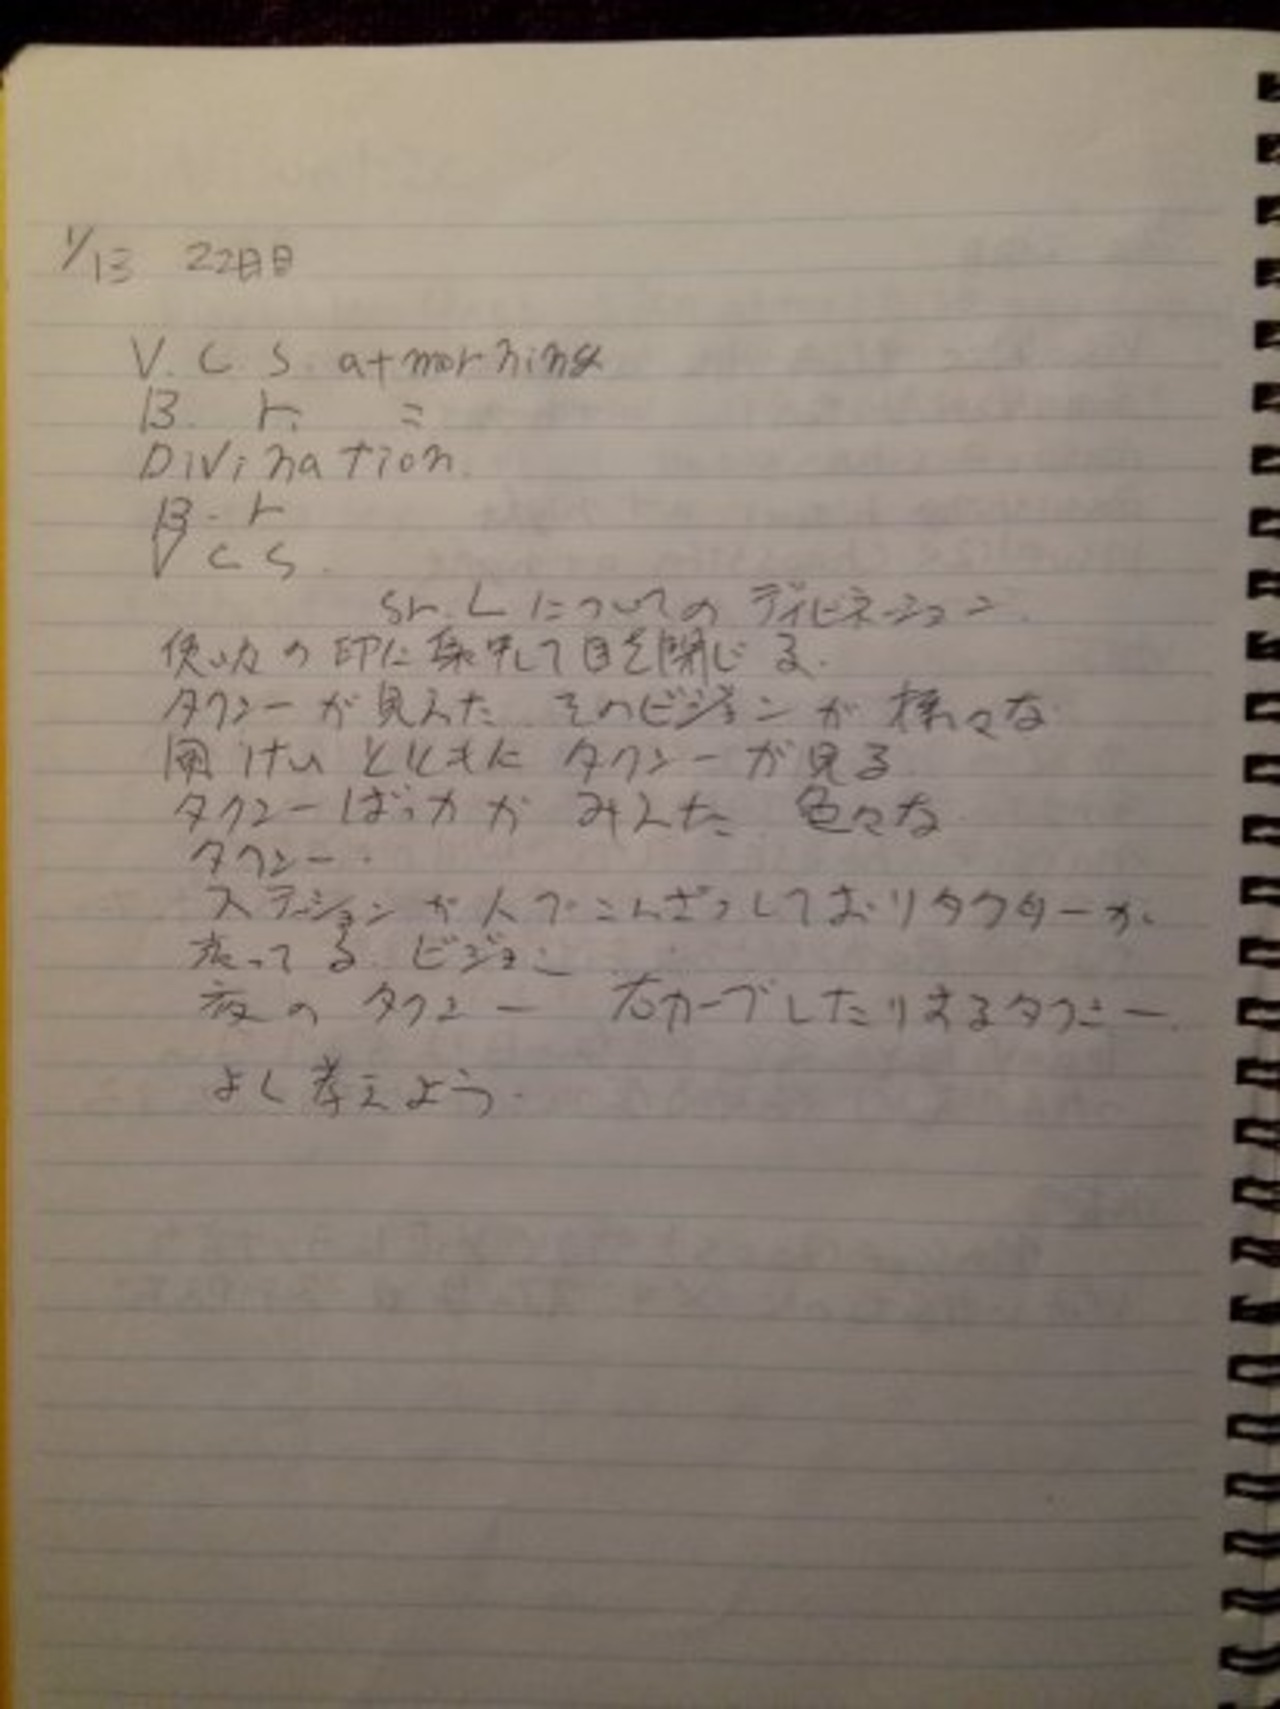 1/13 22日目
V. C. S. at morning
B. r. =
Divination.
B. r
V C S.
Sr. L についてのディビネーション.
使い方の印に集中して目を閉じる.
タクシーが見えた そのビジョンが様々な
風けいとともにタクシーが見る
タクシーばっかがみえた 色々な
タクシー.
ステーションが人でこんざつしておりタクターが
走ってる ビジョン
夜のタクシー 右カーブしたりするタクシー.
よく考えよう.